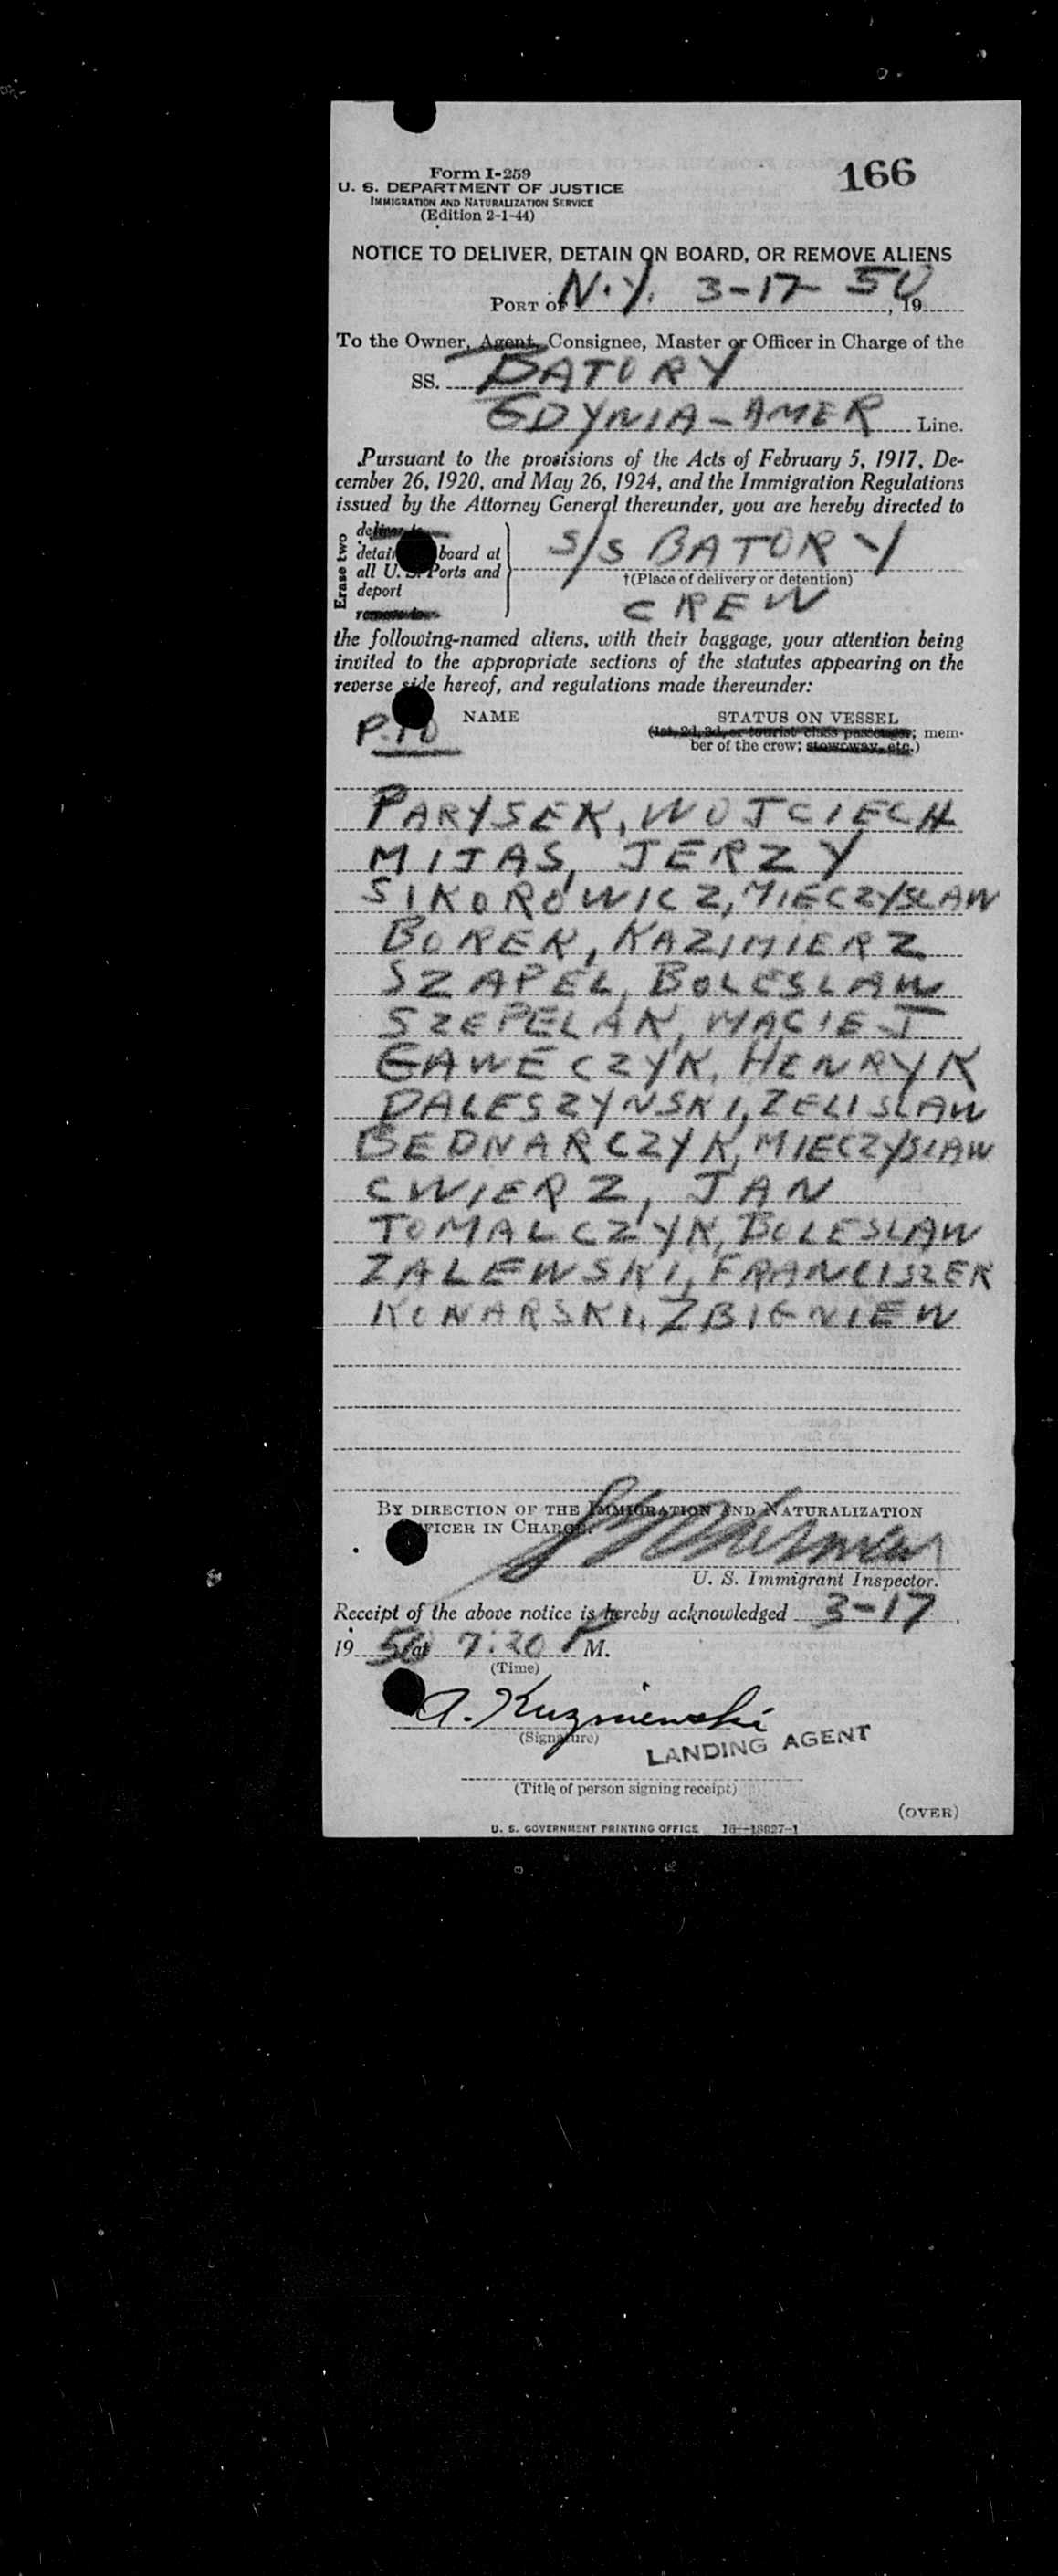 166
Form I-259
U. S. DEPARTMENT OF JUSTICE
IMMIGRATION AND NATURALIZATION SERVICE
(Edition 2-1-44)
NOTICE TO DELIVER, DETAIN ON BOARD, OR REMOVE ALIENS
PORT of N.Y. 3-17- 50, 19
To the Owner, Agent, Consignee, Master or Officer in Charge of the
SS. BATORY
GDYNIA-AMER Line.
Pursuant to the provisions of the Acts of February 5, 1917, De-
cember 26, 1920, and May 26, 1924, and the Immigration Regulations
issued by the Attorney General thereunder, you are hereby directed to
Erase two
deliver to
detain board at
all U. S. Ports and
deport
remove to
S/S BATORY
†(Place of delivery or detention)
CREW
the following-named aliens, with their baggage, your attention being
invited to the appropriate sections of the statutes appearing on the
reverse side hereof, and regulations made thereunder:
P.10
NAME STATUS ON VESSEL
(1st, 2d, 3d, or tourist class passenger; mem-
ber of the crew; stowaway, etc.)
PARYSEK, WOJCIECH
MIJAS, JERZY
SIKOROWICZ, MIECZYSLAW
BOREK, KAZIMIERZ
SZAPEL, BOLESLAW
SZEPELAK, MACIEJ
GAWECZYK, HENRYK
DALESZYNSKI, ZELISLAW
BEDNARCZYK, MIECZYSLAW
CWIERZ, JAN
TOMALCZYK, BOLESLAW
ZALEWSKI, FRANCISZEK
KONARSKI, ZBIGNIEW
BY DIRECTION OF THE IMMIGRATION AND NATURALIZATION
OFFICER IN CHARGE:
U. S. Immigrant Inspector.
Receipt of the above notice is hereby acknowledged 3-17,
19 50 at 7:30 P M.
(Time)
A. Kuzmiewski
(Signature)
LANDING AGENT
(Title of person signing receipt)
(OVER)
U. S. GOVERNMENT PRINTING OFFICE 16—18027-1